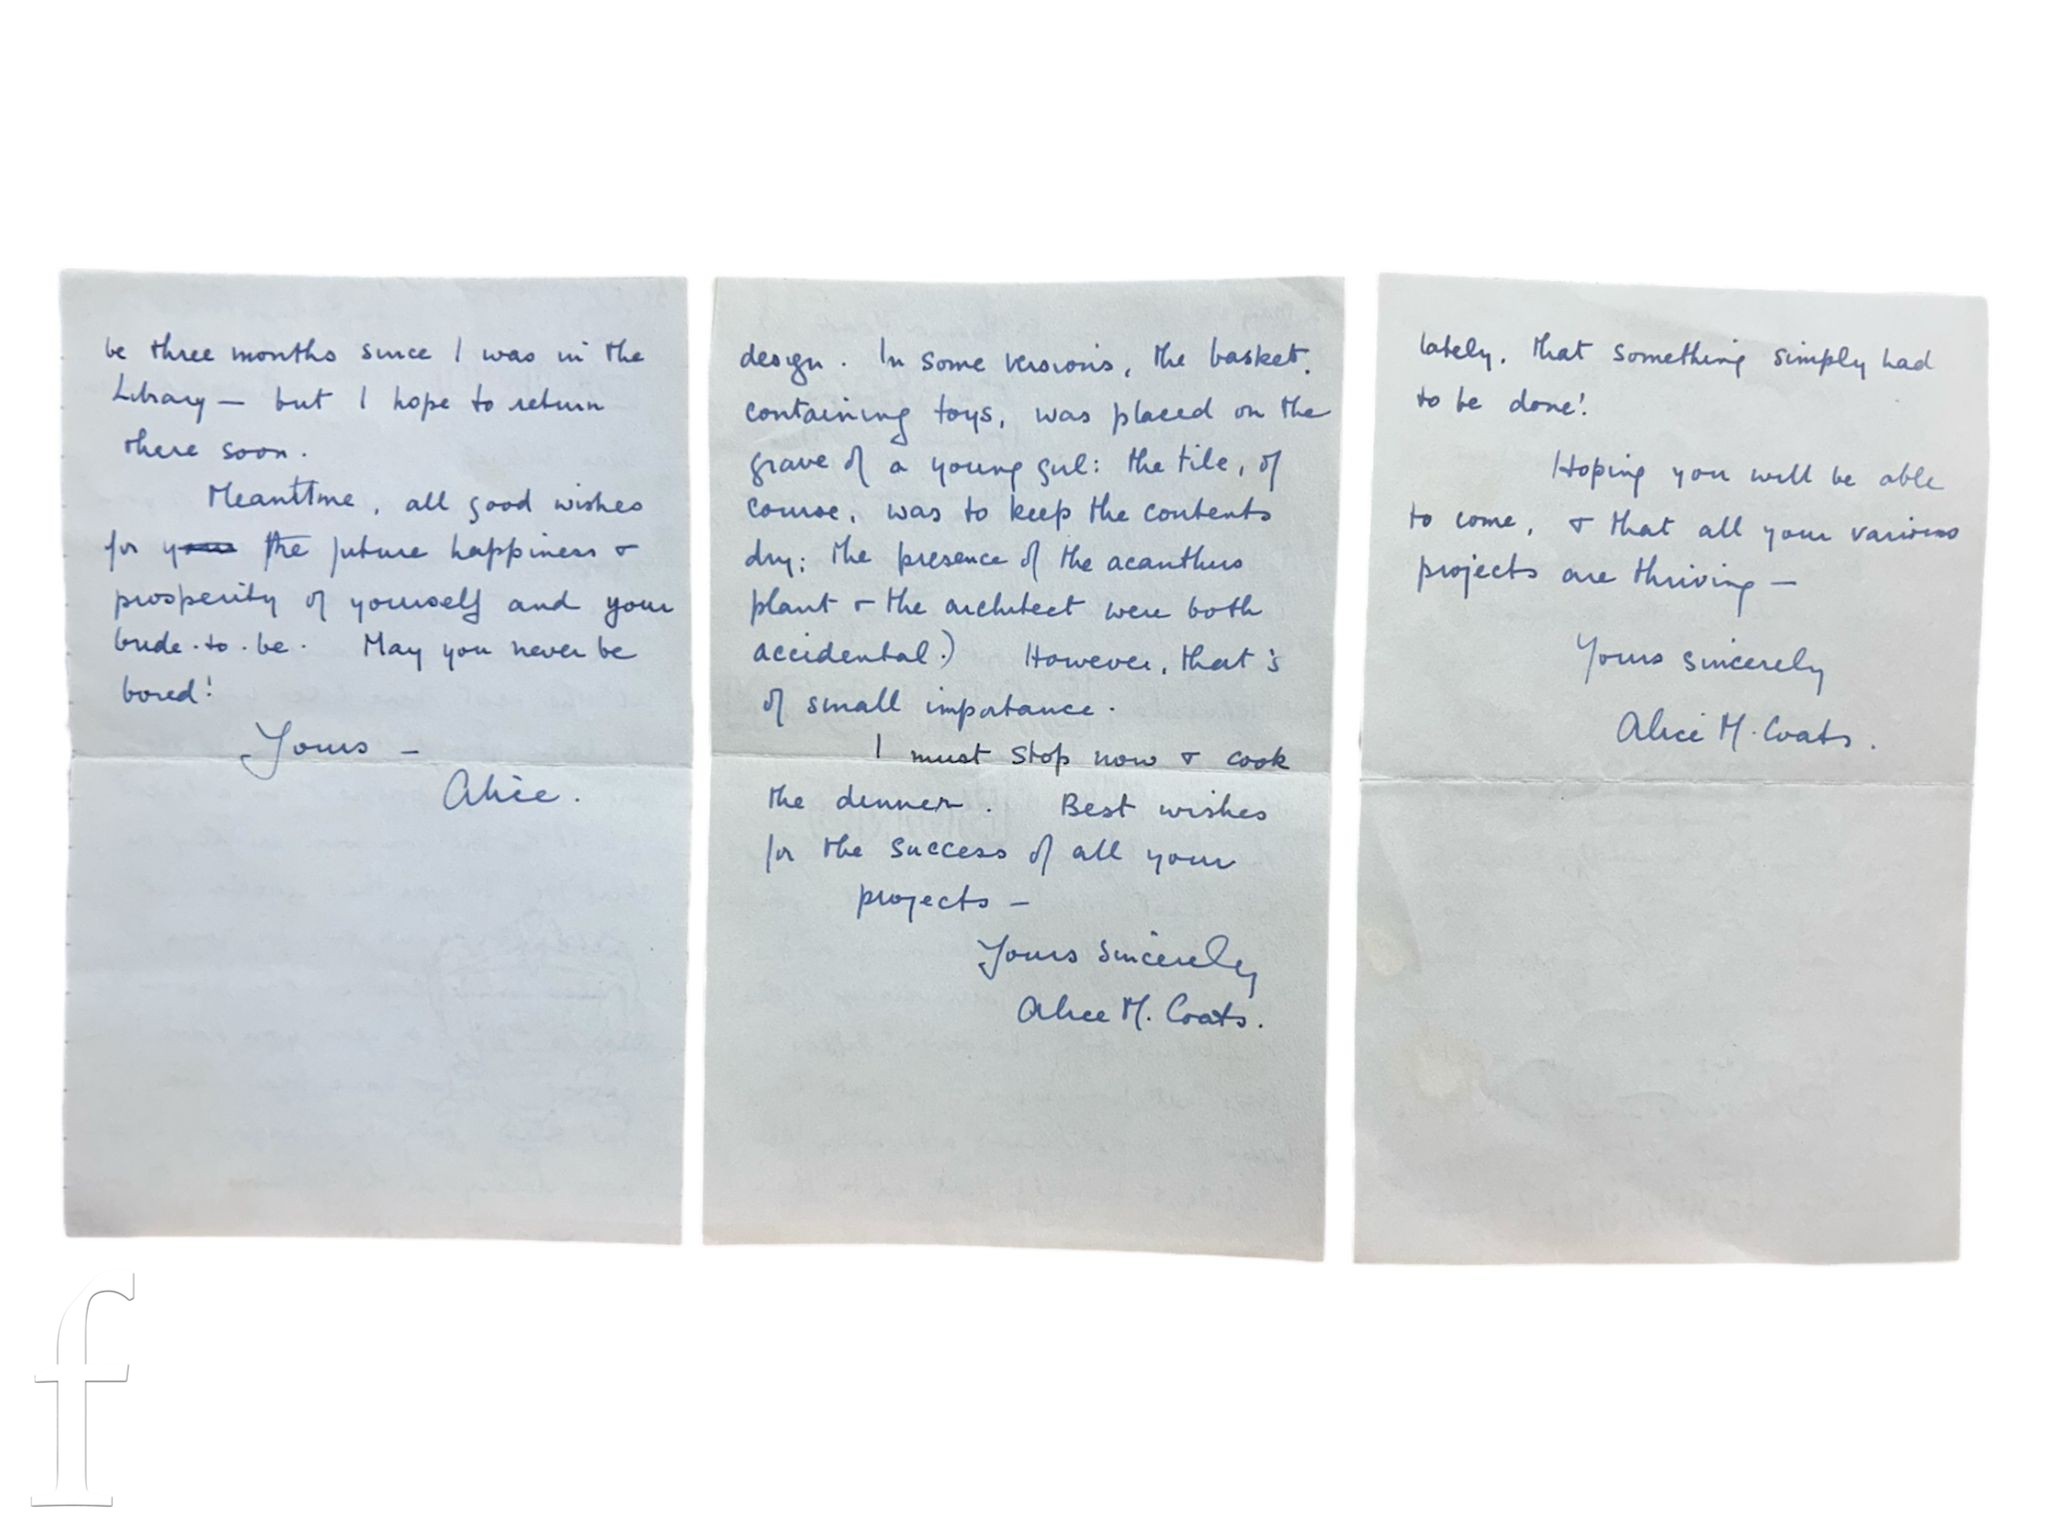 be three months since I was in the
Library — but I hope to return
there soon.
Meanttme, all good wishes
for your the future happiness &
prosperity of yourself and your
bride-to-be. May you never be
bored!
Yours —
Alice.
design. In some versions, the basket,
containing toys, was placed on the
grave of a young girl: the tile, of
course, was to keep the contents
dry; the presence of the acanthus
plant & the architect were both
accidental.) However, that's
of small importance.
I must stop now & cook
the dinner. Best wishes
for the success of all your
projects —
Yours sincerely
Alice M. Coats.
lately, that something simply had
to be done!
Hoping you will be able
to come, & that all your various
projects are thriving —
Yours sincerely
Alice M. Coats.
f